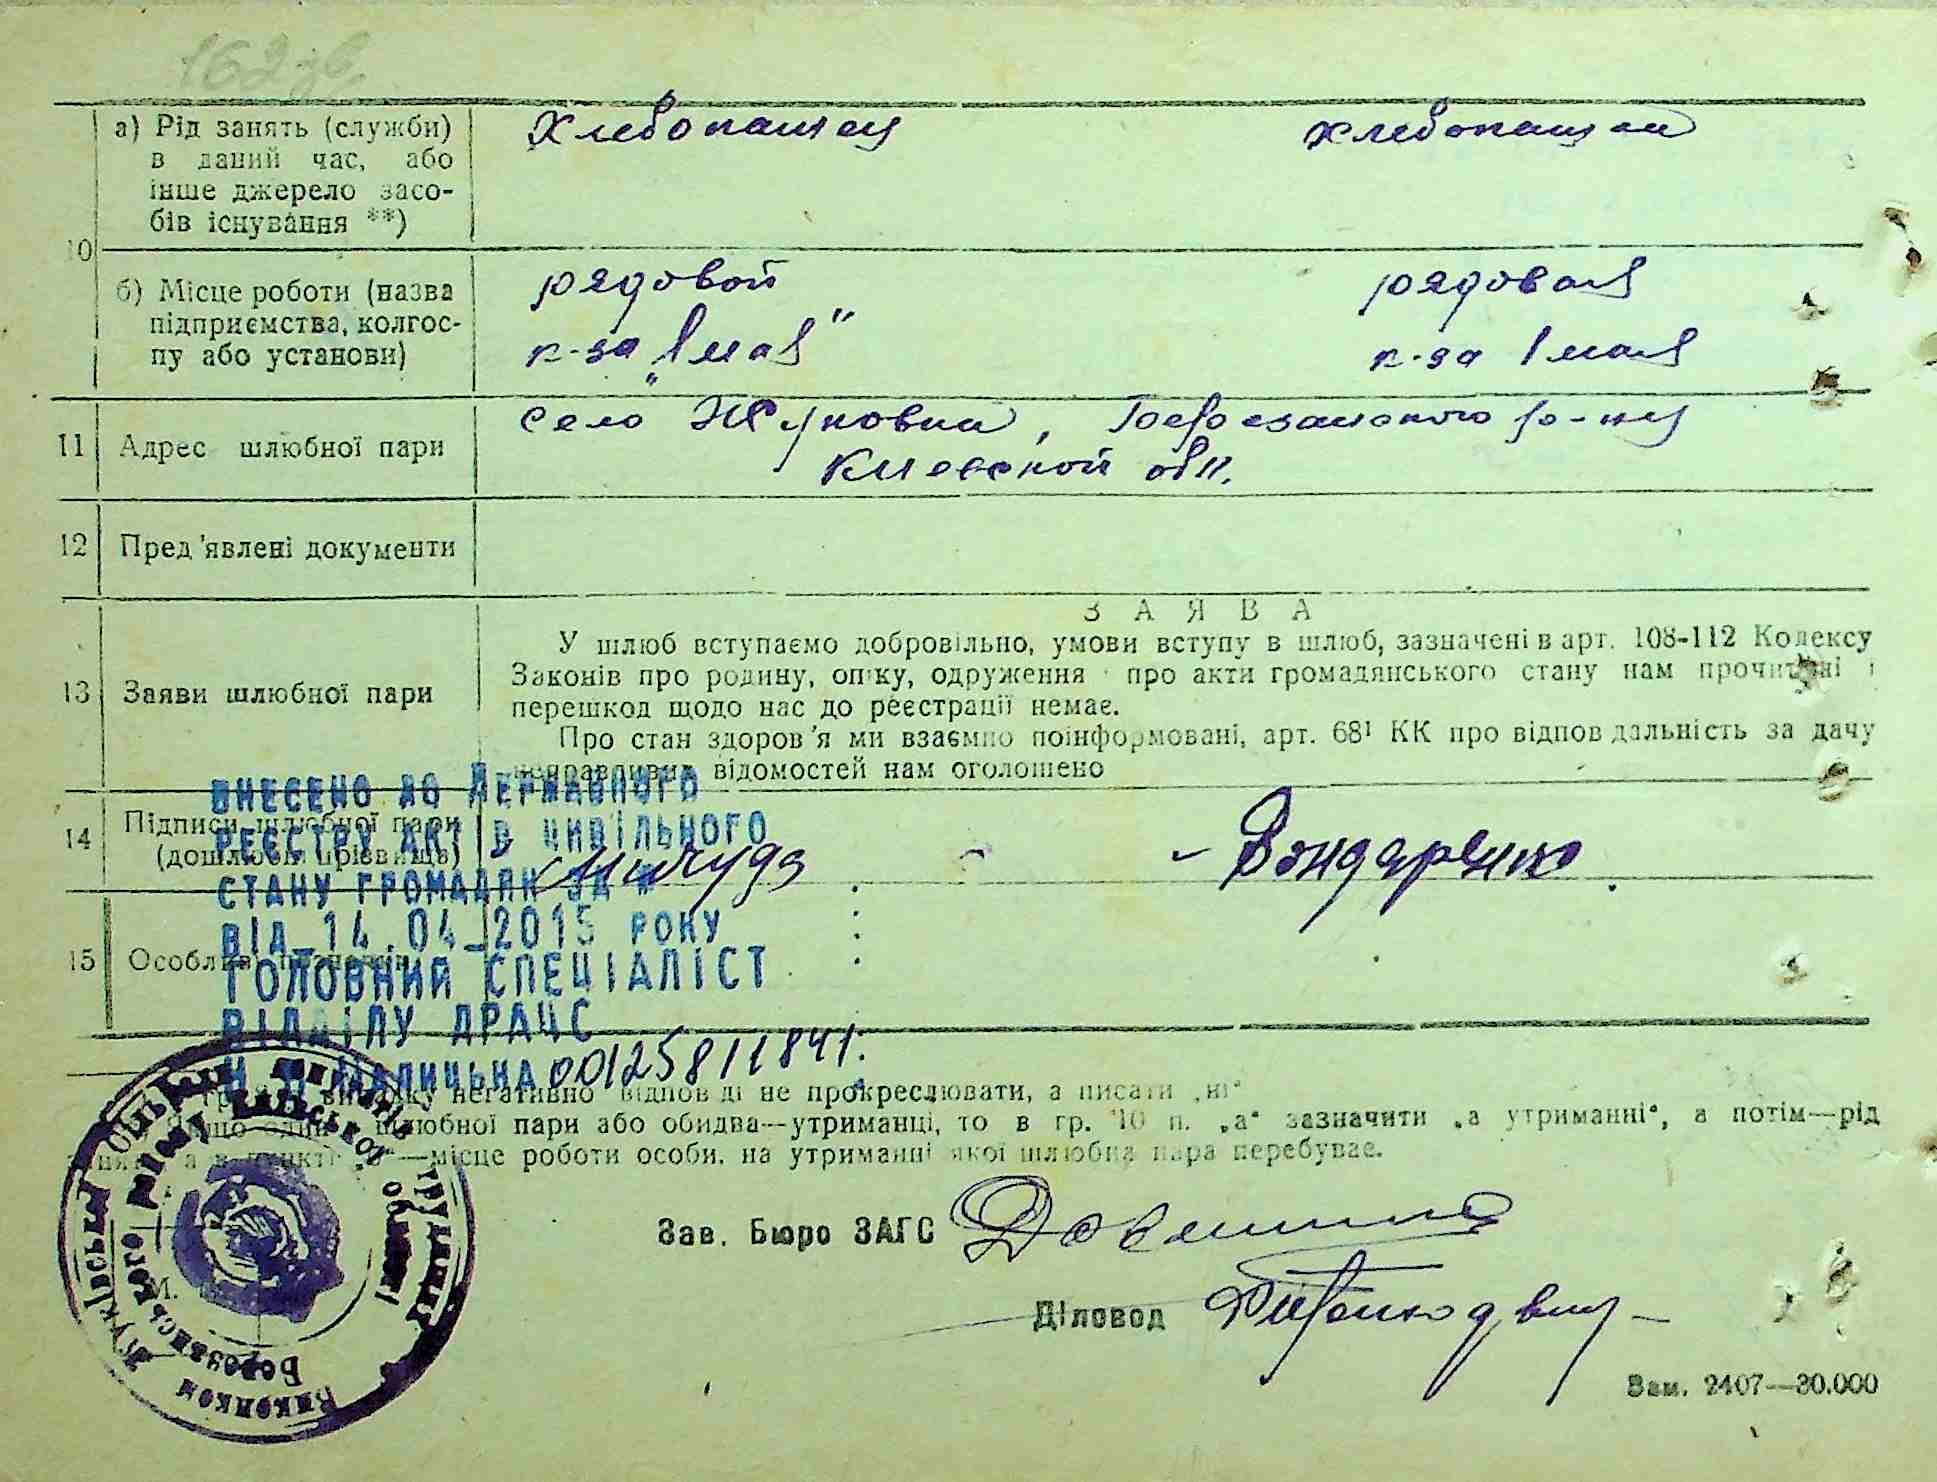 162зв
10
а) Рід занять (служби)
в даний час, або
інше джерело засо-
бів існування **)
Хлебопашец
хлебопашец
б) Місце роботи (назва
підприємства, колгос-
пу або установи)
рядовой
к-за "1 мая"
рядовая
к-за 1 мая
11 Адрес шлюбної пари
село Жуковка, Березанского р-на
Киевской обл.
12 Пред'явлені документи
13 Заяви шлюбної пари
ЗАЯВА
У шлюб вступаємо добровільно, умови вступу в шлюб, зазначені в арт. 108-112 Кодексу
Законів про родину, опіку, одруження і про акти громадянського стану нам прочитані і
перешкод щодо нас до реєстрації немає.
Про стан здоров'я ми взаємно поінформовані, арт. 68¹ КК про відповідальність за дачу
неправдивих відомостей нам оголошено
14 Підписи шлюбної пари
(дошлюбні прізвища)
Бондаренко
15 Особливі
ВНЕСЕНО ДО ДЕРЖАВНОГО
РЕЄСТРУ АКТІВ ЦИВІЛЬНОГО
СТАНУ ГРОМАДЯН ЗА №
ВІД 14.04.2015 РОКУ
ГОЛОВНИЙ СПЕЦІАЛІСТ
ВІДДІЛУ ДРАЦС
00125811841
випадку негативно відповіді не прокреслювати, а писати „ні"
Якщо один шлюбної пари або обидва—утриманці, то в гр. 10 п. „а" зазначити „а утриманні", а потім—рід
занять, а в пункті „б"—місце роботи особи, на утриманні якої шлюбна пара перебуває.
Зав. Бюро ЗАГС
Діловод
М.
Виконком Жуківської сільської ради депутатів трудящих
Березанського району Київської області
Зам. 2407—30.000